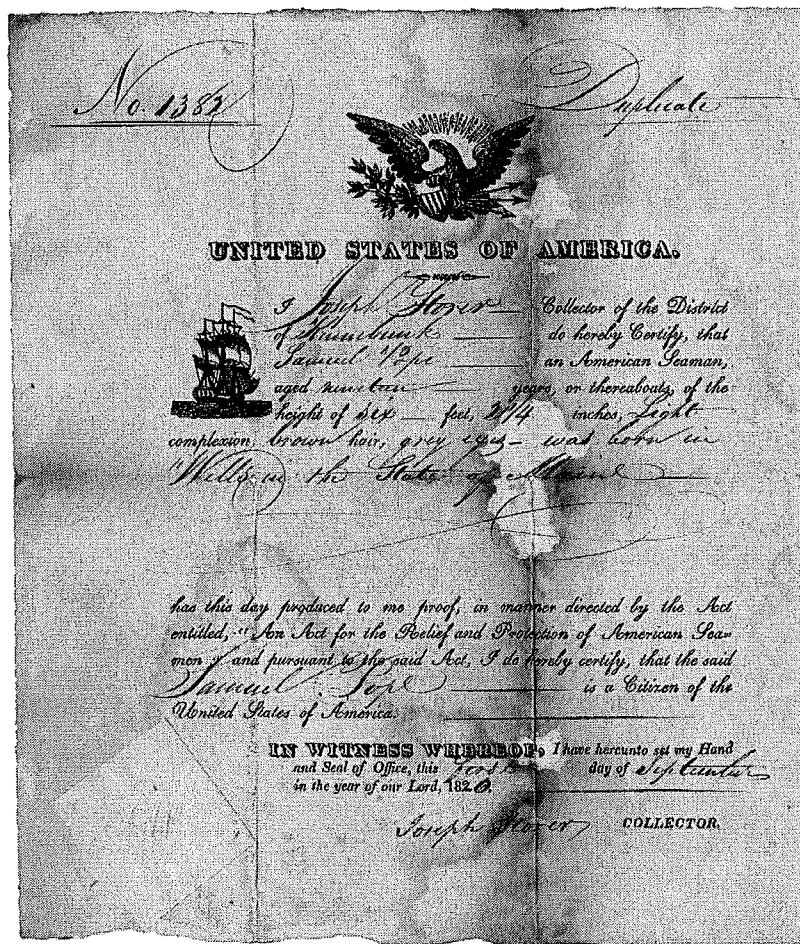 No. 1382
Duplicate
UNITED STATES OF AMERICA.
I Joseph Storer Collector of the District
of Kennebunk do hereby Certify, that
Samuel Pope an American Seaman,
aged nineteen years, or thereabouts, of the
height of Six feet, inches, Light
complexion, brown hair, grey eyes - was born in
Wells in the State of Maine
has this day produced to me proof, in manner directed by the Act
entitled, "An Act for the Relief and Protection of American Sea-
men;" and pursuant to the said Act, I do hereby certify, that the said
Samuel Pope is a Citizen of the
United States of America.
IN WITNESS WHEREOF, I have hereunto set my Hand
and Seal of Office, this day of September
in the year of our Lord, 1820.
Joseph Storer COLLECTOR.